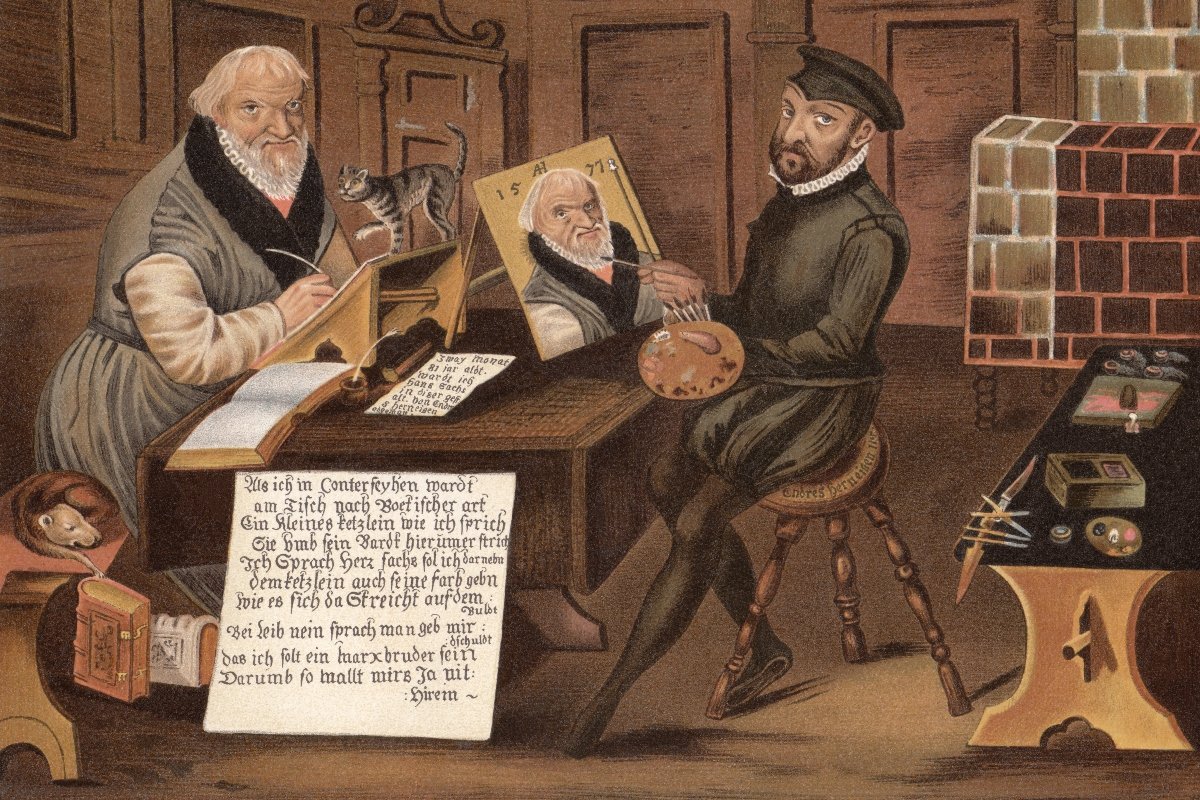 15 AH 73
Zway Monat
81 jar aldt.
wardt ich
hans Sachs
in diser gest
alt. von Endre
s herneisen
abgemalt
Endres herneisen
Als ich in Conterfeyhen wardt
am Tisch nach Boetischer art
Ein Kleines ketzlein wie ich sprich
Sie vmb sein Bardt hierumer strich
Ich Sprach Herz sachs sol ich darnebn
dem ketzlein auch seine farb gebn
wie es sich da Streicht auf dem :
Buldt
Bei Leib nein sprach man geb mir :
: dschuldt
das ich solt ein marxbruder sein
Darumb so mallt mirs Ja nit:
: Hirein ~